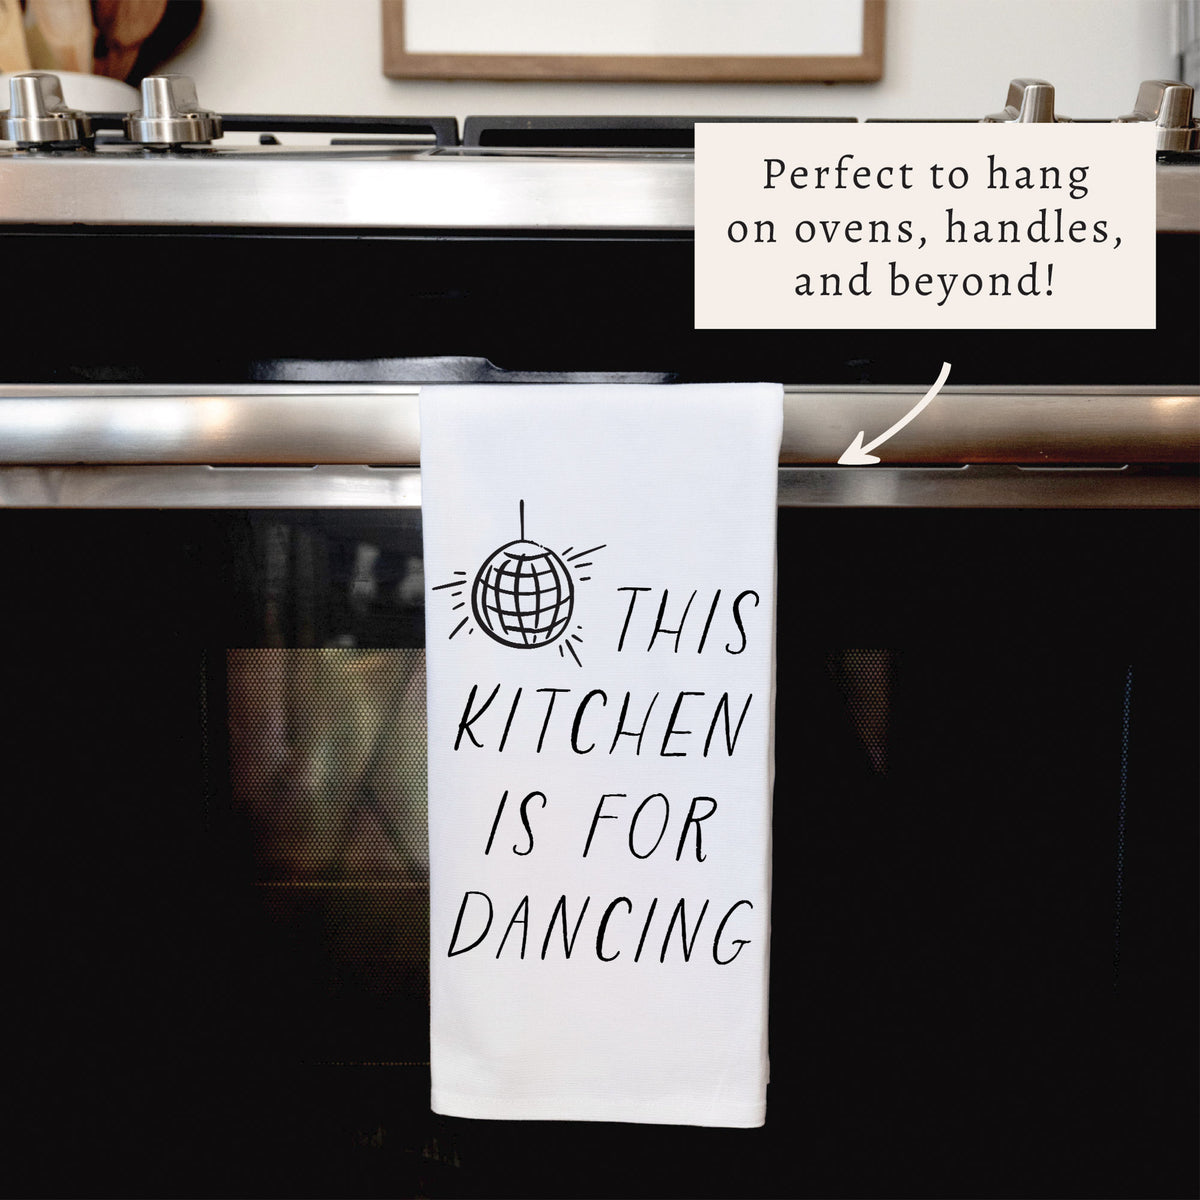 Perfect to hang
on ovens, handles,
and beyond!
THIS
KITCHEN
IS FOR
DANCING